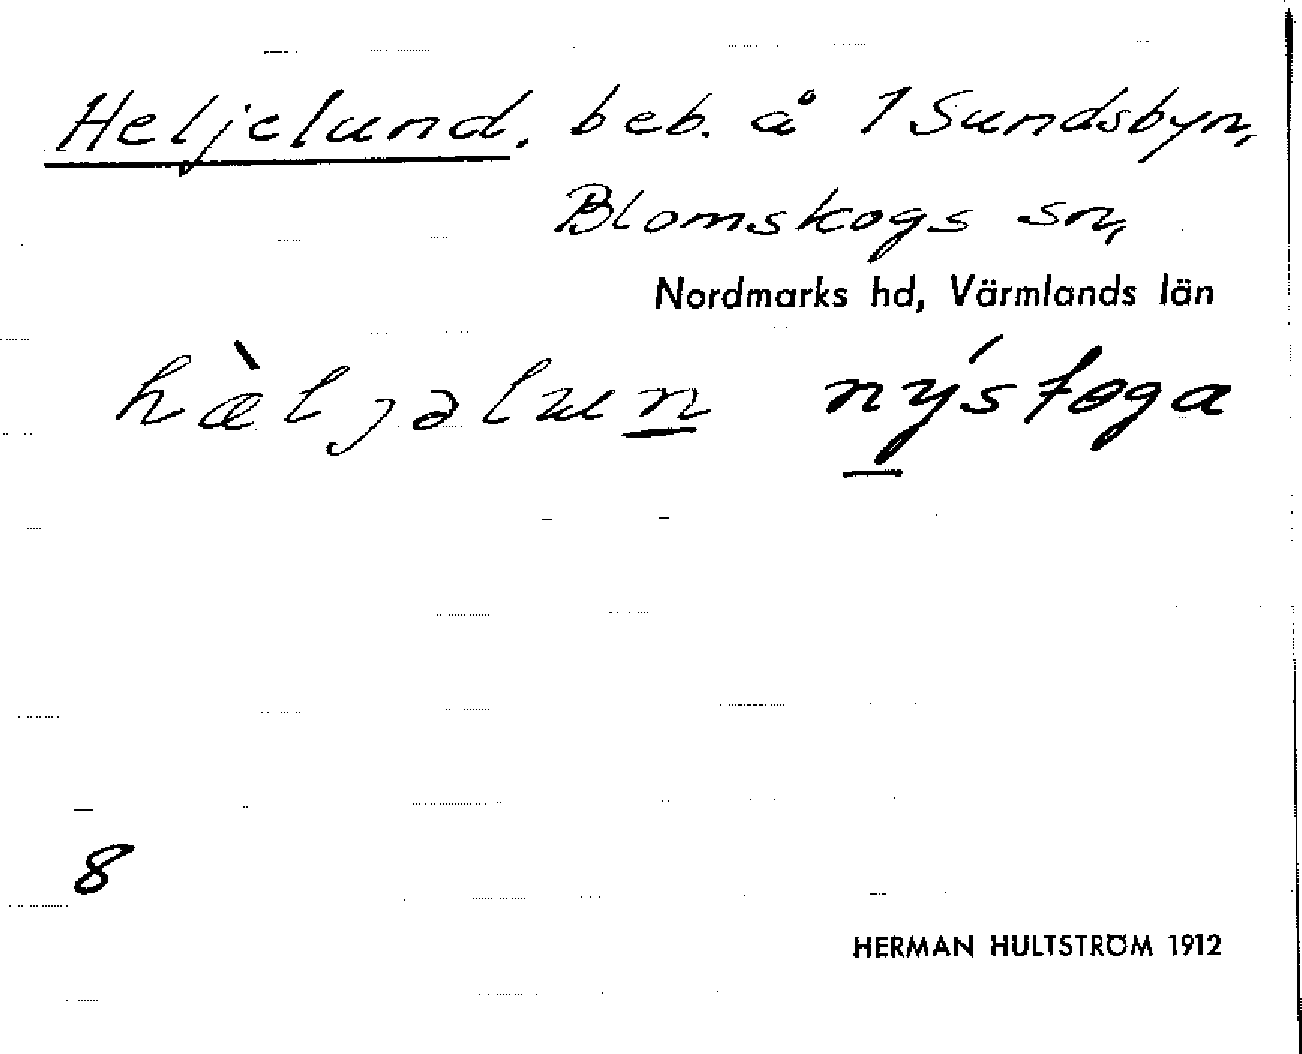 Heljelund. beb. å 1 Sundsbyn,
Blomskogs sn,
Nordmarks hd, Värmlands län
hæ̀ljəlun nýstoga
8
HERMAN HULTSTRÖM 1912